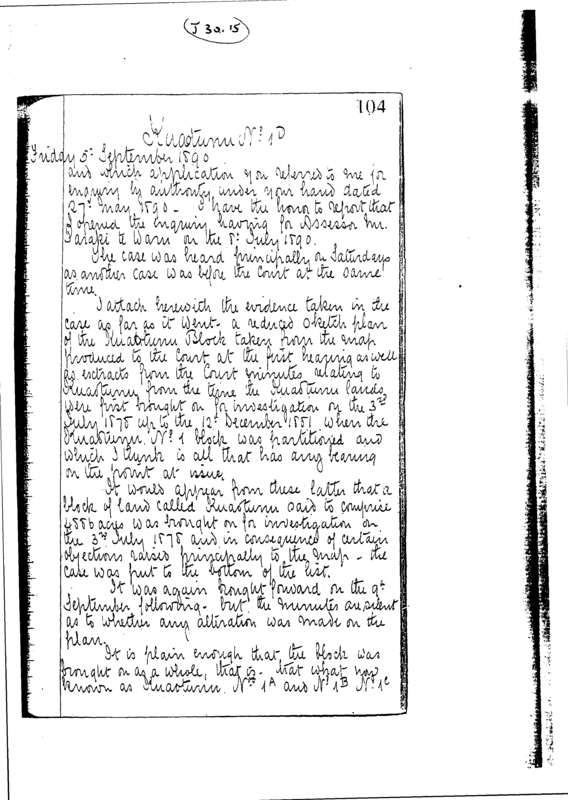 J 30.15
104
Kuaotunu No. 1D
Friday 5th September 1890
and which application you referred to me for
enquiry by authority under your hand dated
27th May 1890 - I have the honor to report that
I opened the enquiry having for Assessor Mr.
on the 8th July 1890.
The case was heard principally on Saturdays
as another case was before the Court at the same
time.
I attach herewith the evidence taken in the
case as far as it went - a reduced sketch plan
of the Kuaotunu Block taken from the map
produced to the Court at the first hearing as well
as extracts from the Court minutes relating to
Kuaotunu from the time the Kuaotunu lands
were first brought on for investigation on the 3rd
July 1878 up to the 12th December 1881 when the
Kuaotunu No. 1 block was partitioned and
which I think is all that has any bearing
on the point at issue.
It would appear from these latter that a
block of land called Kuaotunu said to comprise
acres was brought on for investigation on
the 3rd July 1878 and in consequence of certain
objections raised principally to the map - the
case was put to the bottom of the list.
It was again brought forward on the 9th
September following - but the minutes are silent
as to whether any alteration was made on the
plan.
It is plain enough that the block was
brought on as a whole, that is - that what now
known as Kuaotunu Nos. 1A and No. 1B No. 1C